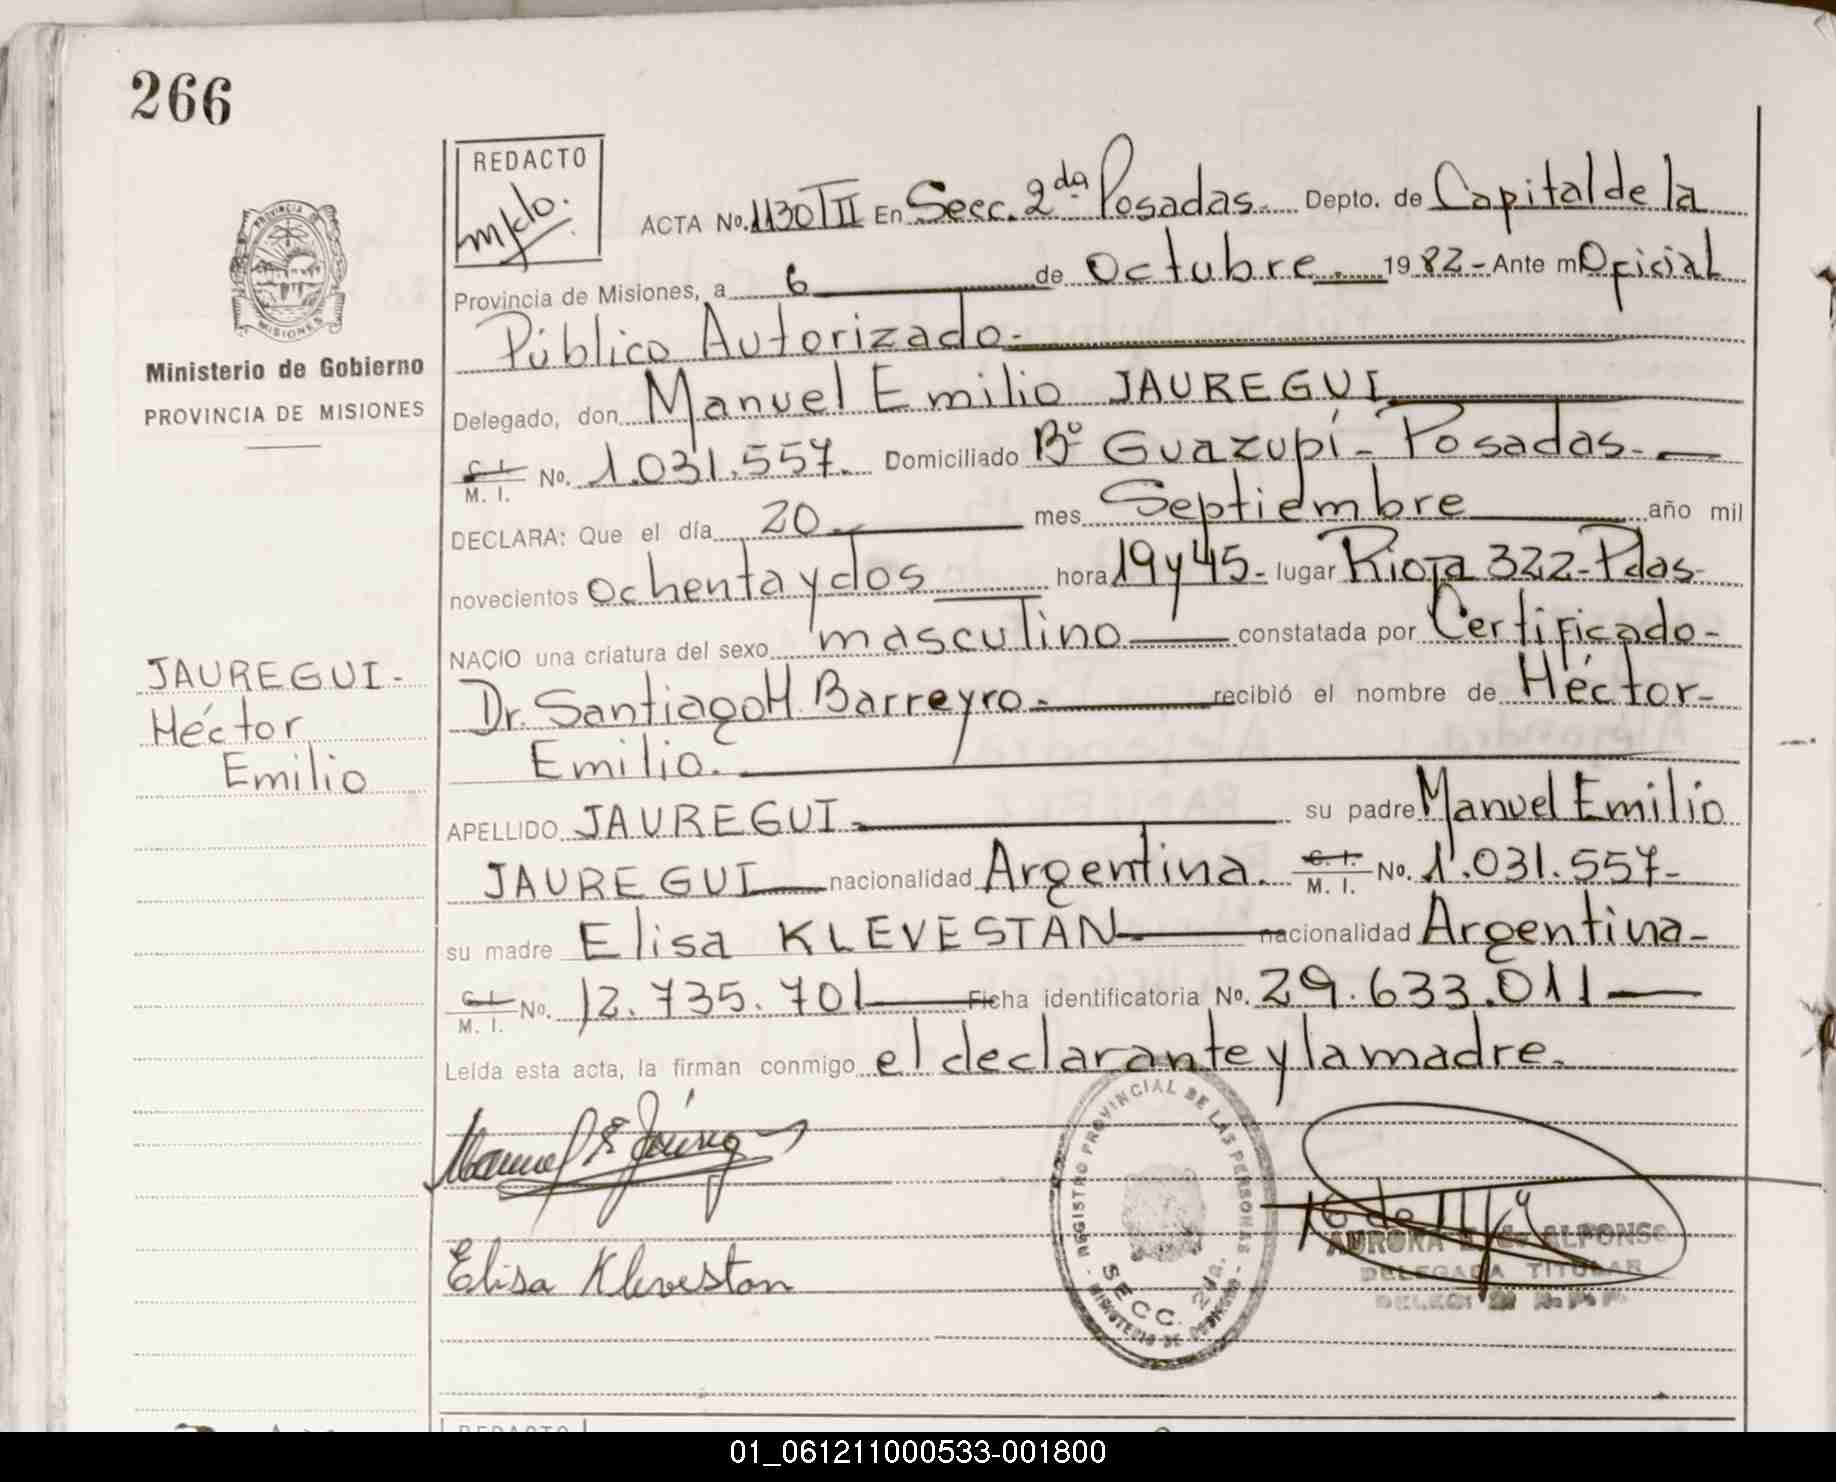 266
REDACTO
ACTA No. 1130 T II En Secc. 2da Posadas. Depto. de Capital de la
Provincia de Misiones, a 6 de Octubre 1982 - Ante m Oficial
Público Autorizado -
Delegado, don Manuel Emilio JAUREGUI
C. I. M. I. No. 1.031.557. Domiciliado Bº Guazupí - Posadas. -
DECLARA: Que el día 20 mes Septiembre año mil
novecientos ochenta y dos hora 19 y 45 - lugar Rioja 322 - Pdas -
NACIO una criatura del sexo masculino constatada por Certificado -
Dr. Santiago H. Barreyro. - recibió el nombre de Héctor -
Emilio.
APELLIDO JAUREGUI su padre Manuel Emilio
JAUREGUI nacionalidad Argentina. C. I. M. I. No. 1.031.557 -
su madre Elisa KLEVESTAN nacionalidad Argentina -
C. I. M. I. No. 12.735.701 Ficha identificatoria No. 29.633.011
Leída esta acta, la firman conmigo el declarante y la madre.
PROVINCIA DE
MISIONES
Ministerio de Gobierno
PROVINCIA DE MISIONES
JAUREGUI -
Héctor
Emilio
Elisa Klevestan
REGISTRO PROVINCIAL DE LAS PERSONAS
SECC. 2da.
MINISTERIO DE GOBIERNO
AURORA ALFONSO
DELEGADA TITULAR
REDACTO
01_061211000533-001800